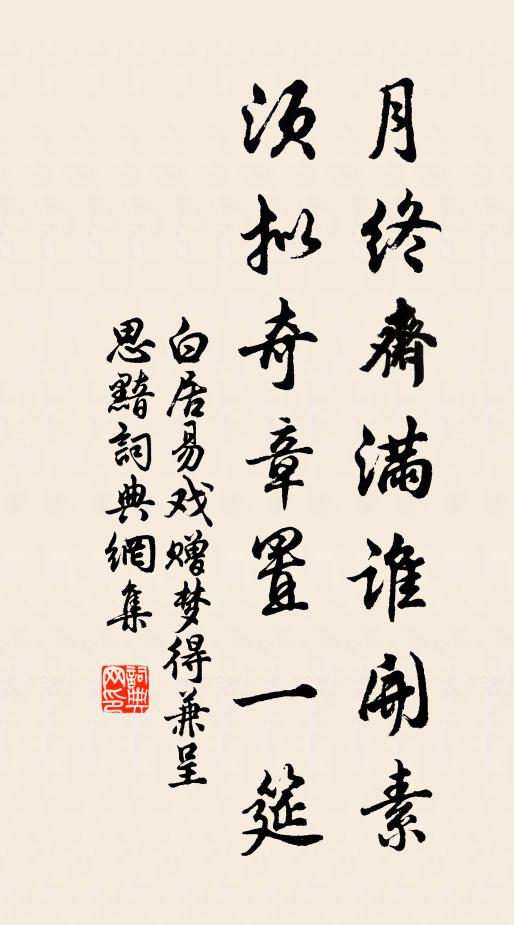 月终齋满谁開素
须拟奇章置一筵
白居易戏赠梦得兼呈
思黯詞典網集
詞典网印